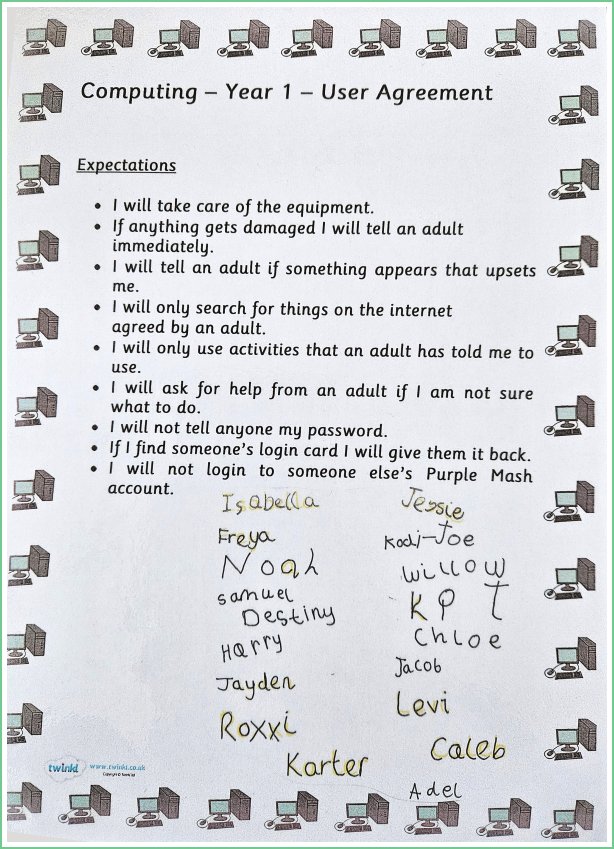 Computing – Year 1 – User Agreement
Expectations
• I will take care of the equipment.
• If anything gets damaged I will tell an adult
immediately.
• I will tell an adult if something appears that upsets
me.
• I will only search for things on the internet
agreed by an adult.
• I will only use activities that an adult has told me to
use.
• I will ask for help from an adult if I am not sure
what to do.
• I will not tell anyone my password.
• If I find someone's login card I will give them it back.
• I will not login to someone else's Purple Mash
account.
Isabella Jessie
Freya Kodi-Joe
Noah Willow
Samuel K P T
Destiny Chloe
Harry Jacob
Jayden Levi
Roxxi Caleb
Karter
Adel
twinkl www.twinkl.co.uk